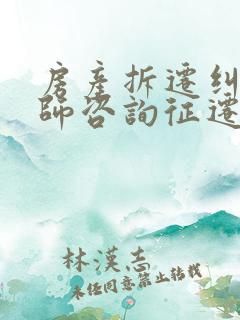 房產拆遷糾
師咨詢征遷
林漢志
未经同意禁止转载